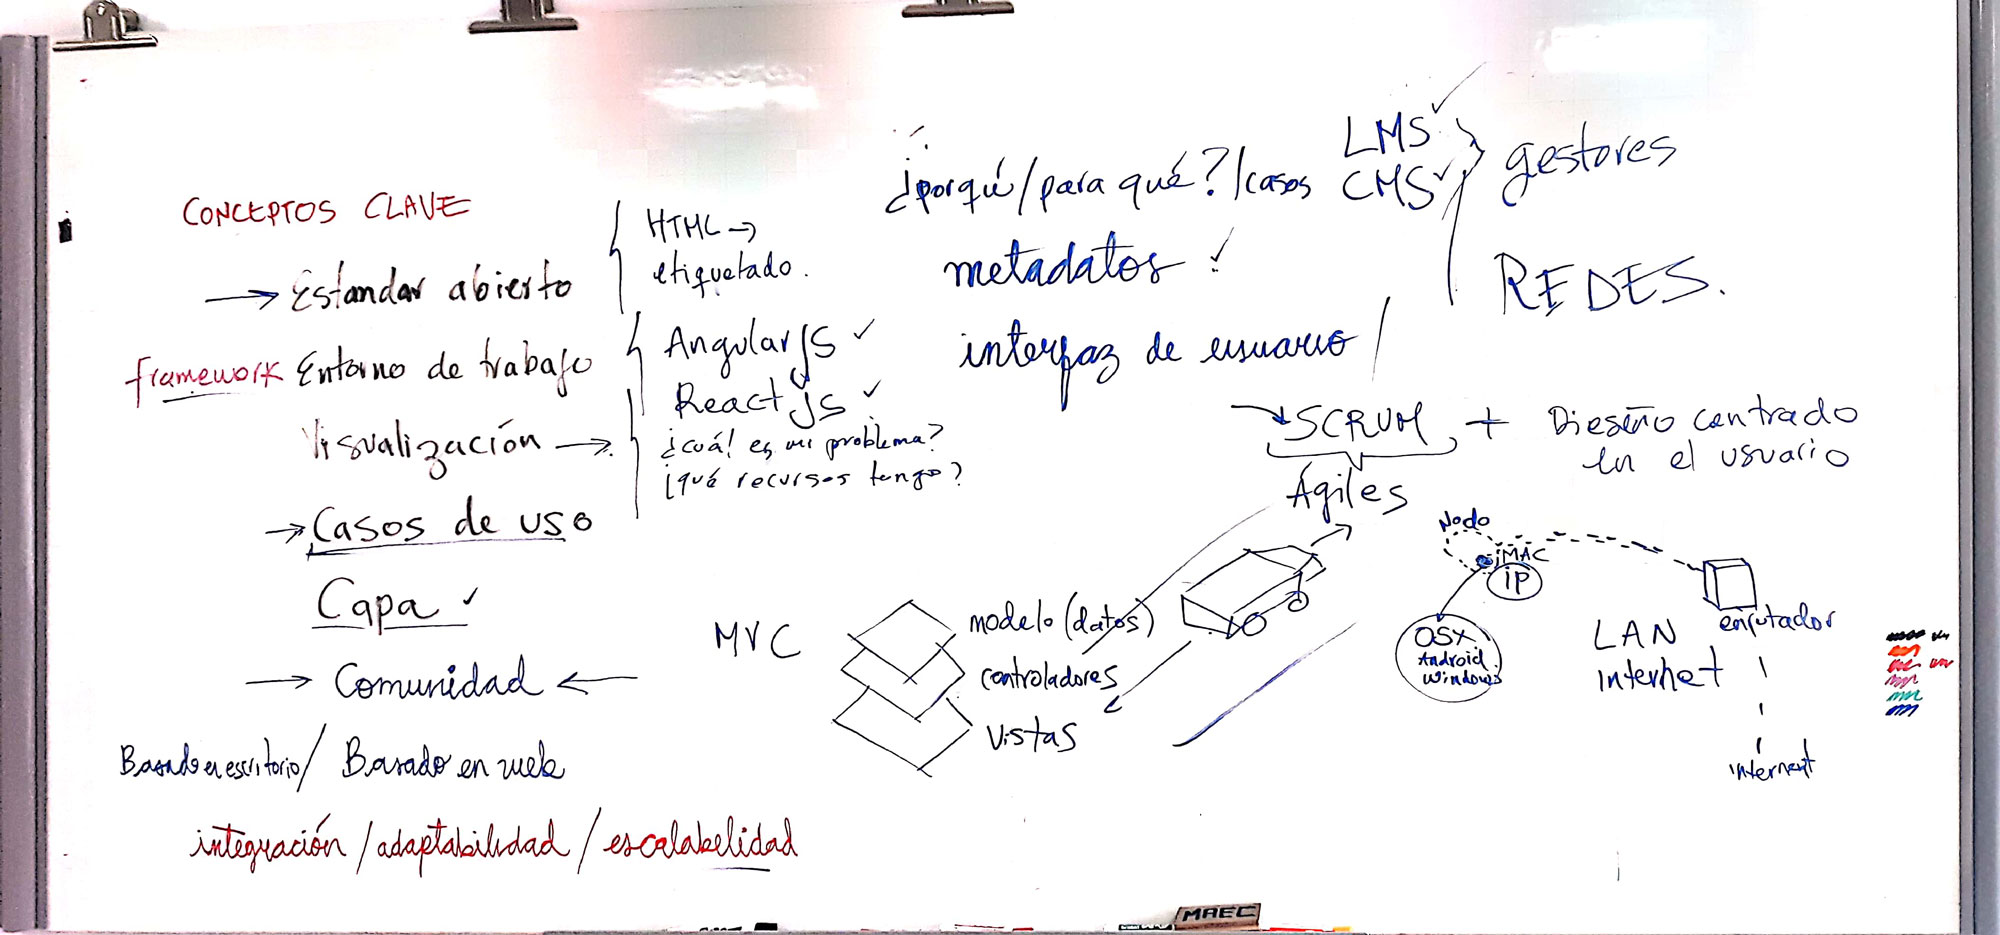 CONCEPTOS CLAVE
→ Estandar abierto
HTML →
etiquetado.
framework Entorno de trabajo
Angular JS ✓
React JS ✓
Visualización →
¿cuál es mi problema?
¿qué recursos tengo?
→ Casos de uso
Capa ✓
→ Comunidad ←
Basado en escritorio / Basado en web
integración / adaptabilidad / escalabelidad
¿porqué / para qué? / casos
LMS ✓
CMS ✓
gestores
metadatos ✓
REDES.
interfaz de usuario /
SCRUM + Dieseño centrado
en el usuario
Ágiles
MVC
modelo (datos)
controladores
vistas
Nodo
MAC
iP
OSX
Android
Windows
LAN
internet
enrutador
internet
MAEC